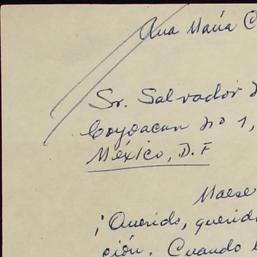 Ana María C
Sr. Salvador
Coyoacan No 1,
México, D.F
Maese
¡Querido, querid
ción. Cuando